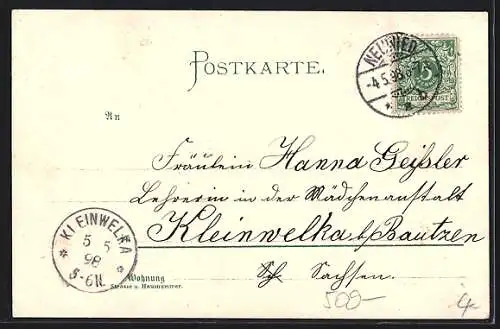 POSTKARTE.
NEUWIED
-4.5.98
5
REICHSPOST
An
Fräulein Hanna Geißler
Lehrerin in der Mädchenanstalt
Kleinwelka b/ Bautzen
Sachsen.
KLEINWELKA
5 5
98
5-6N.
Wohnung
Strasse u. Hausnummer.
500-
4-